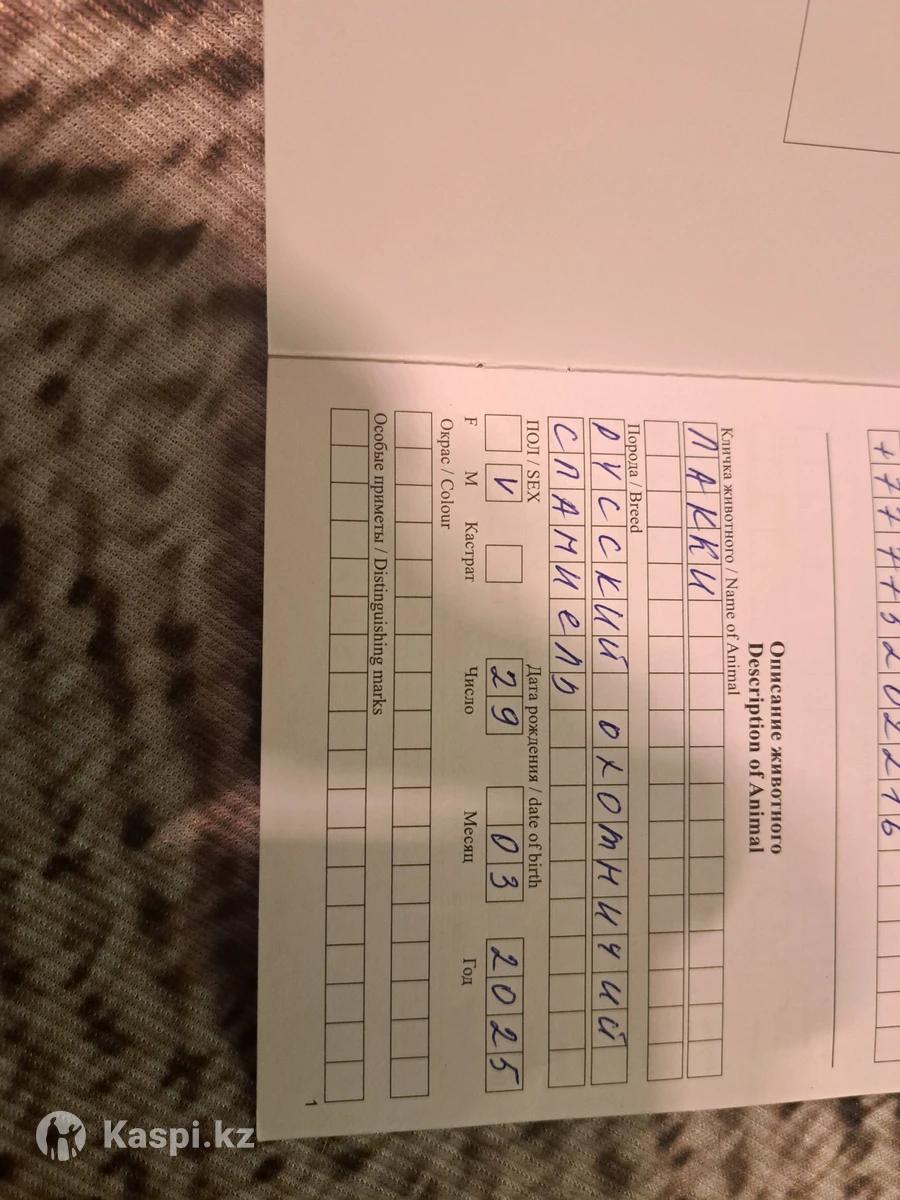 +77773202216
Описание животного
Description of Animal
Кличка животного / Name of Animal
ЛАККИ
Порода / Breed
РУССКИЙ ОХОТНИЧИЙ
СПАНИеЛЬ
ПОЛ / SEX Дата рождения / date of birth
V 29 03 2025
F M Кастрат Число Месяц Год
Окрас / Colour
Особые приметы / Distinguishing marks
1
Kaspi.kz